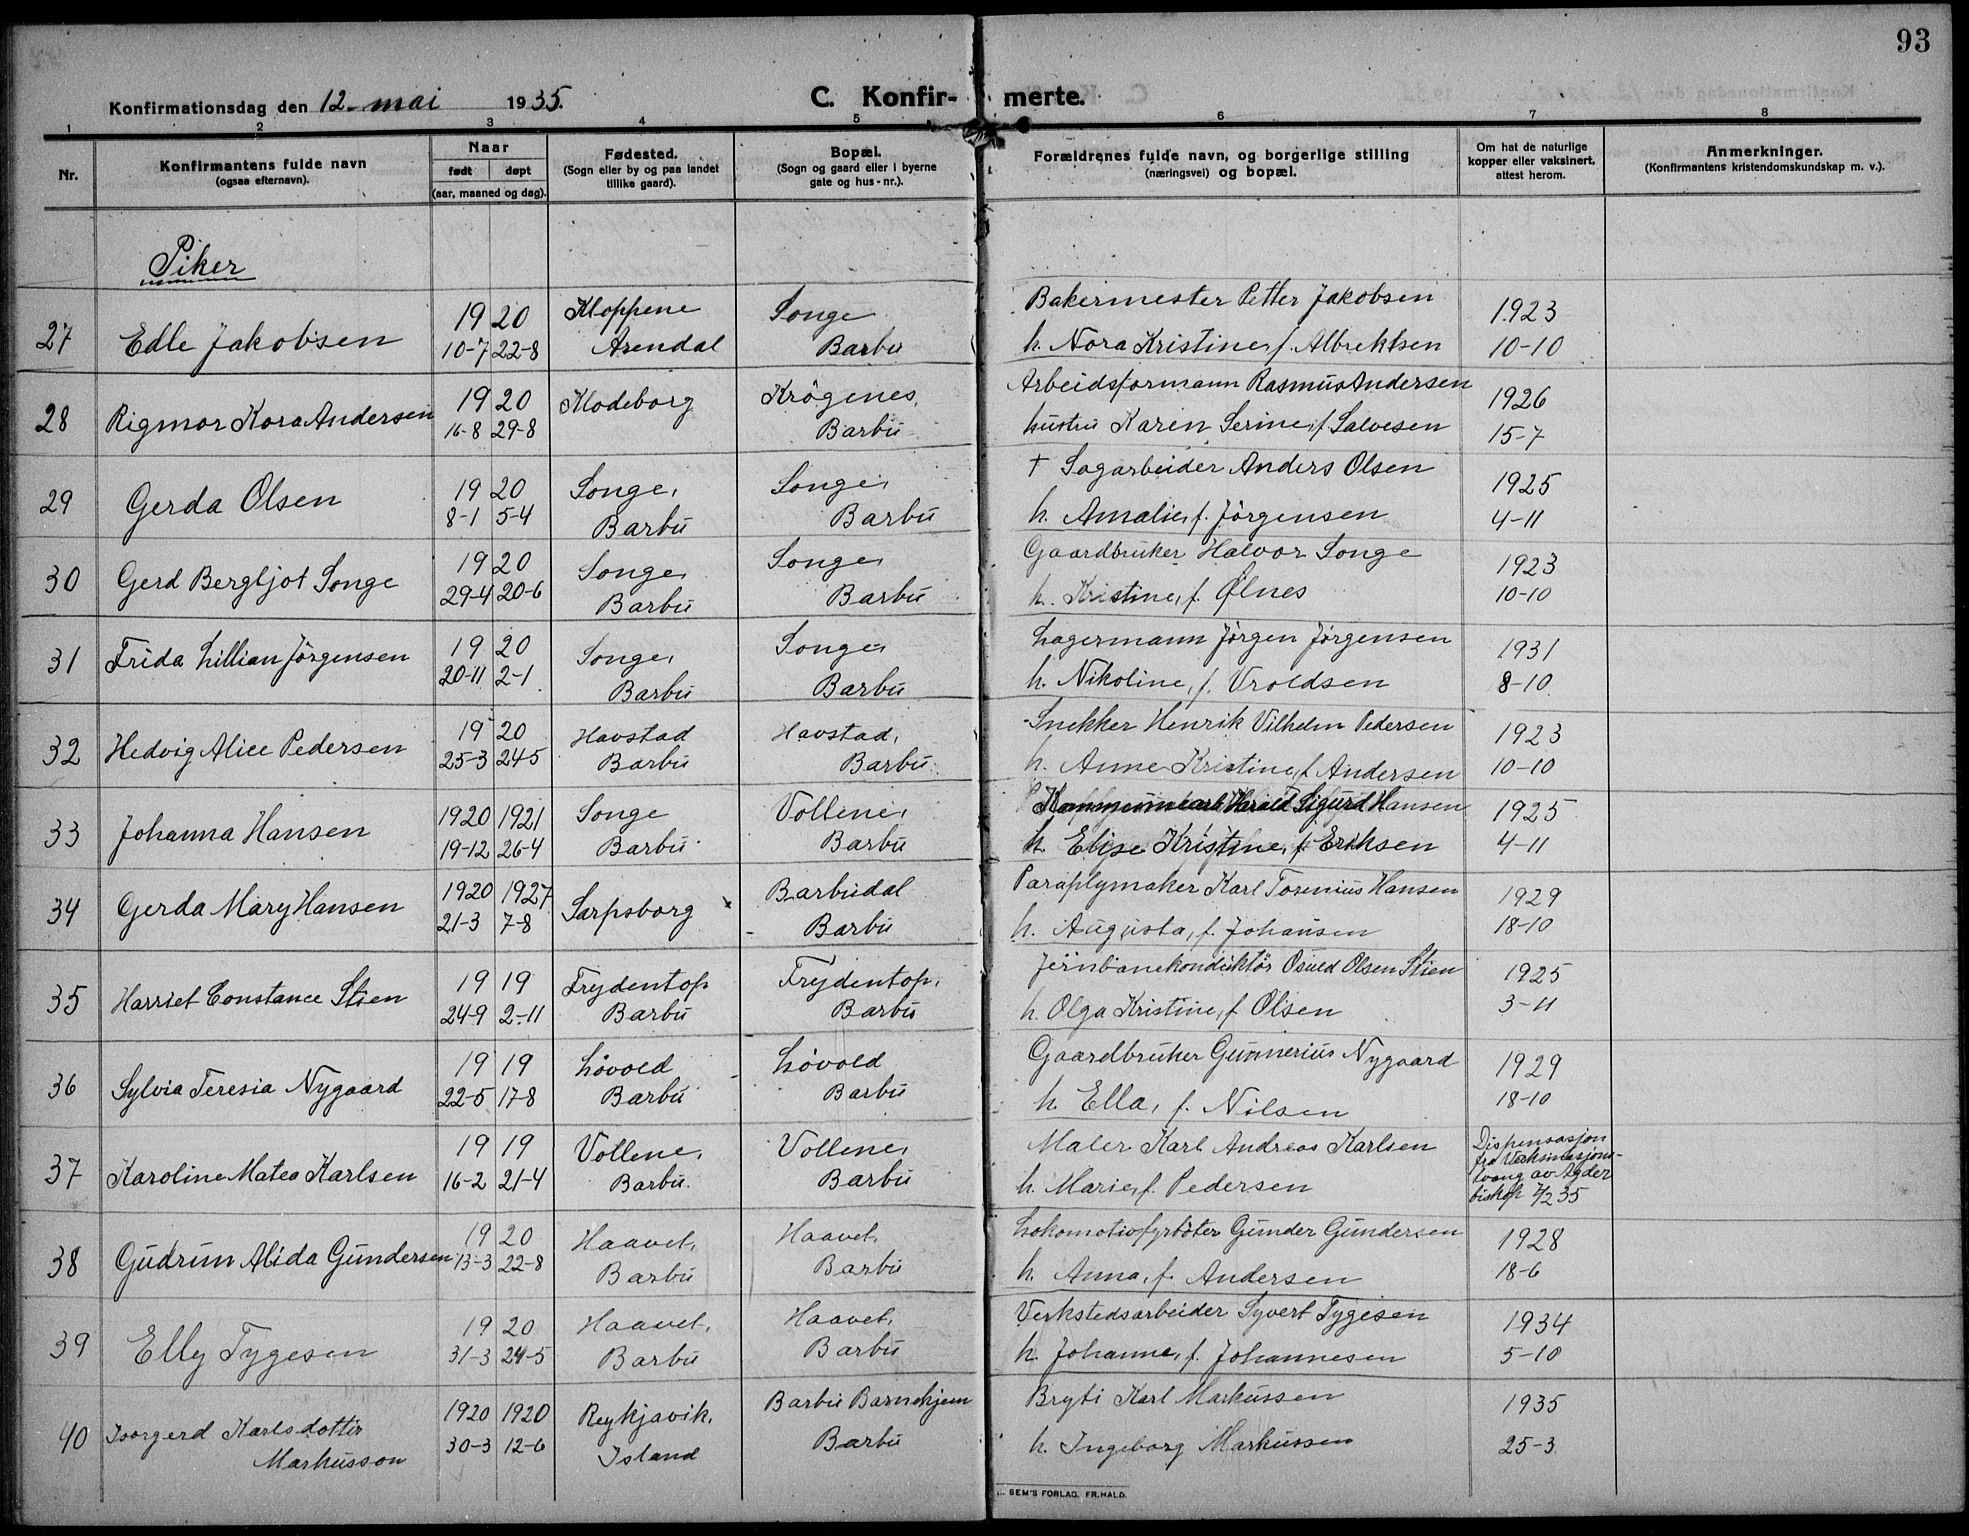 93
Konfirmationsdag den 12. mai 1935.
C. Konfir- merte.
1 2 3 4 5 6 7 8
Nr.
Konfirmantens fulde navn
(ogsaa efternavn).
Naar
født døpt
(aar, maaned og dag).
Fødested.
(Sogn eller by og paa landet
tillike gaard).
Bopæl.
(Sogn og gaard eller i byerne
gate og hus-nr.).
Forældrenes fulde navn, og borgerlige stilling
(næringsvei) og bopæl.
Om hat de naturlige
kopper eller vaksinert,
attest herom.
Anmerkninger.
(Konfirmantens kristendomskundskap m. v.).
Piker
19 20 Kloppene Songe Bakermester Petter Jakobsen 1923
27 Edle Jakobsen 10-7 22-8 Arendal Barbu h. Nora Kristine, f. Albrektsen 10-10
19 20 Klodeborg Krögenes, Arbeidsformann Rasmus Andersen 1926
28 Rigmor Kora Andersen 16-8 29-8 Barbu hustru Karen Serine, f. Salvesen 15-7
19 20 Songe, Songe, † Sagarbeider Anders Olsen 1925
29 Gerda Olsen 8-1 5-4 Barbu Barbu h. Amalie, f. Jörgensen 4-11
19 20 Songe, Songe, Gaardbruker Halvor Songe 1923
30 Gerd Bergljot Songe 29-4 20-6 Barbu Barbu h. Kristine, f. Ølnes 10-10
19 20 Songe, Songe, Lagermann Jörgen Jörgensen 1931
31 Frida Lillian Jörgensen 20-11 2-1 Barbu Barbu h. Nikoline, f. Vroldsen 8-10
19 20 Havstad Havstad, Snekker Henrik Vilhelm Pedersen 1923
32 Hedvig Alice Pedersen 25-3 24-5 Barbu Barbu h. Anne Kristine, f. Andersen 10-10
1920 1921 Songe Vollene, Harald Sigurd Hansen 1925
33 Johanna Hansen 19-12 26-4 Barbu Barbu h. Elise Kristine, f. Eriksen 4-11
1920 1927 Sarpsborg Barbudal Paraplymaker Karl Torenius Hansen 1929
34 Gerda Mary Hansen 21-3 7-8 Barbu h. Augusta, f. Johansen 18-10
19 19 Frydentop Frydentop, Jernbanekonduktör Osvld Olsen Stien 1925
35 Harriet Constance Stien 24-9 2-11 Barbu Barbu h. Olga Kristine, f. Olsen 3-11
19 19 Lövold Lövold Gaardbruker Gunnerius Nygaard 1929
36 Sylvia Teresia Nygaard 22-5 17-8 Barbu Barbu h. Ella, f. Nilsen 18-10
19 19 Vollene, Vollene, Maler Karl Andreas Karlsen Dispensasjon
fra Vaksinasjons-
37 Karoline Matea Karlsen 16-2 21-4 Barbu Barbu h. Marie, f. Pedersen tvang av Agder
biskop 7/2 35
19 20 Haavet, Haavet, Lokomotivfyrböter Gunder Gundersen 1928
38 Gudrun Alida Gundersen 13-3 22-8 Barbu Barbu h. Anna, f. Andersen 18-6
19 20 Haavet, Haavet, Verkstedsarbeider Syvert Tygesen 1934
39 Elly Tygesen 31-3 24-5 Barbu Barbu h. Johanne, f. Johannesen 5-10
1920 1920 Reykjavik, Barbu Barnehjem Bryti Karl Markussen 1935
40 Karlsdottir 30-3 12-6 Island Barbu h. Ingeborg Markussen 25-3
Markusson
SEM'S FORLAG, FR.HALD.